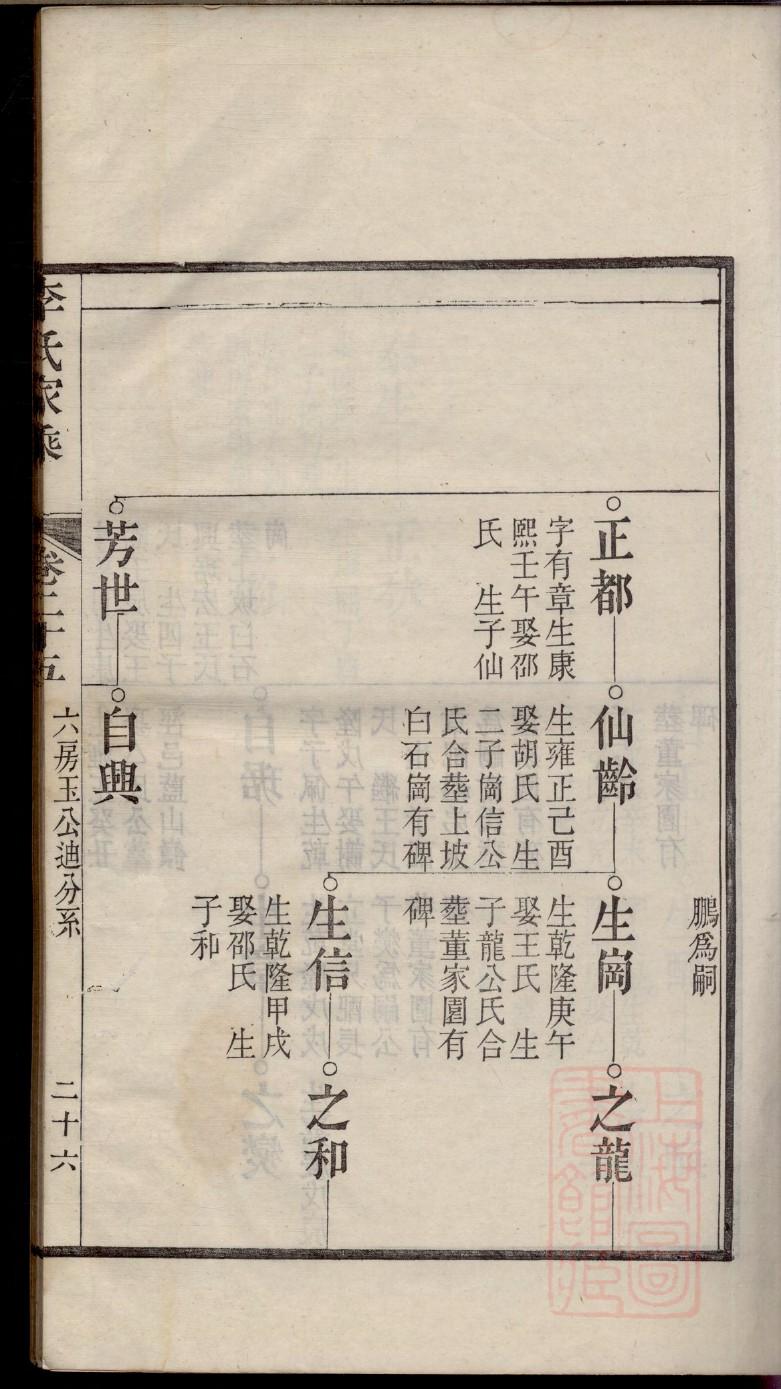 鵬爲嗣
正都
字有章生康
熙壬午娶邵
氏　生子仙
仙齡
生雍正己酉
娶胡氏　生
二子崗信公
氏合塟上坡
白石崗有碑
生崗
生乾隆庚午
娶王氏　生
子龍公氏合
塟董家園有
碑
之龍
生信
生乾隆甲戌
娶邵氏　生
子和
之和
芳世
自興
李氏家乘
卷二十五
六房玉公迪分系
二十六
上海圖書館藏